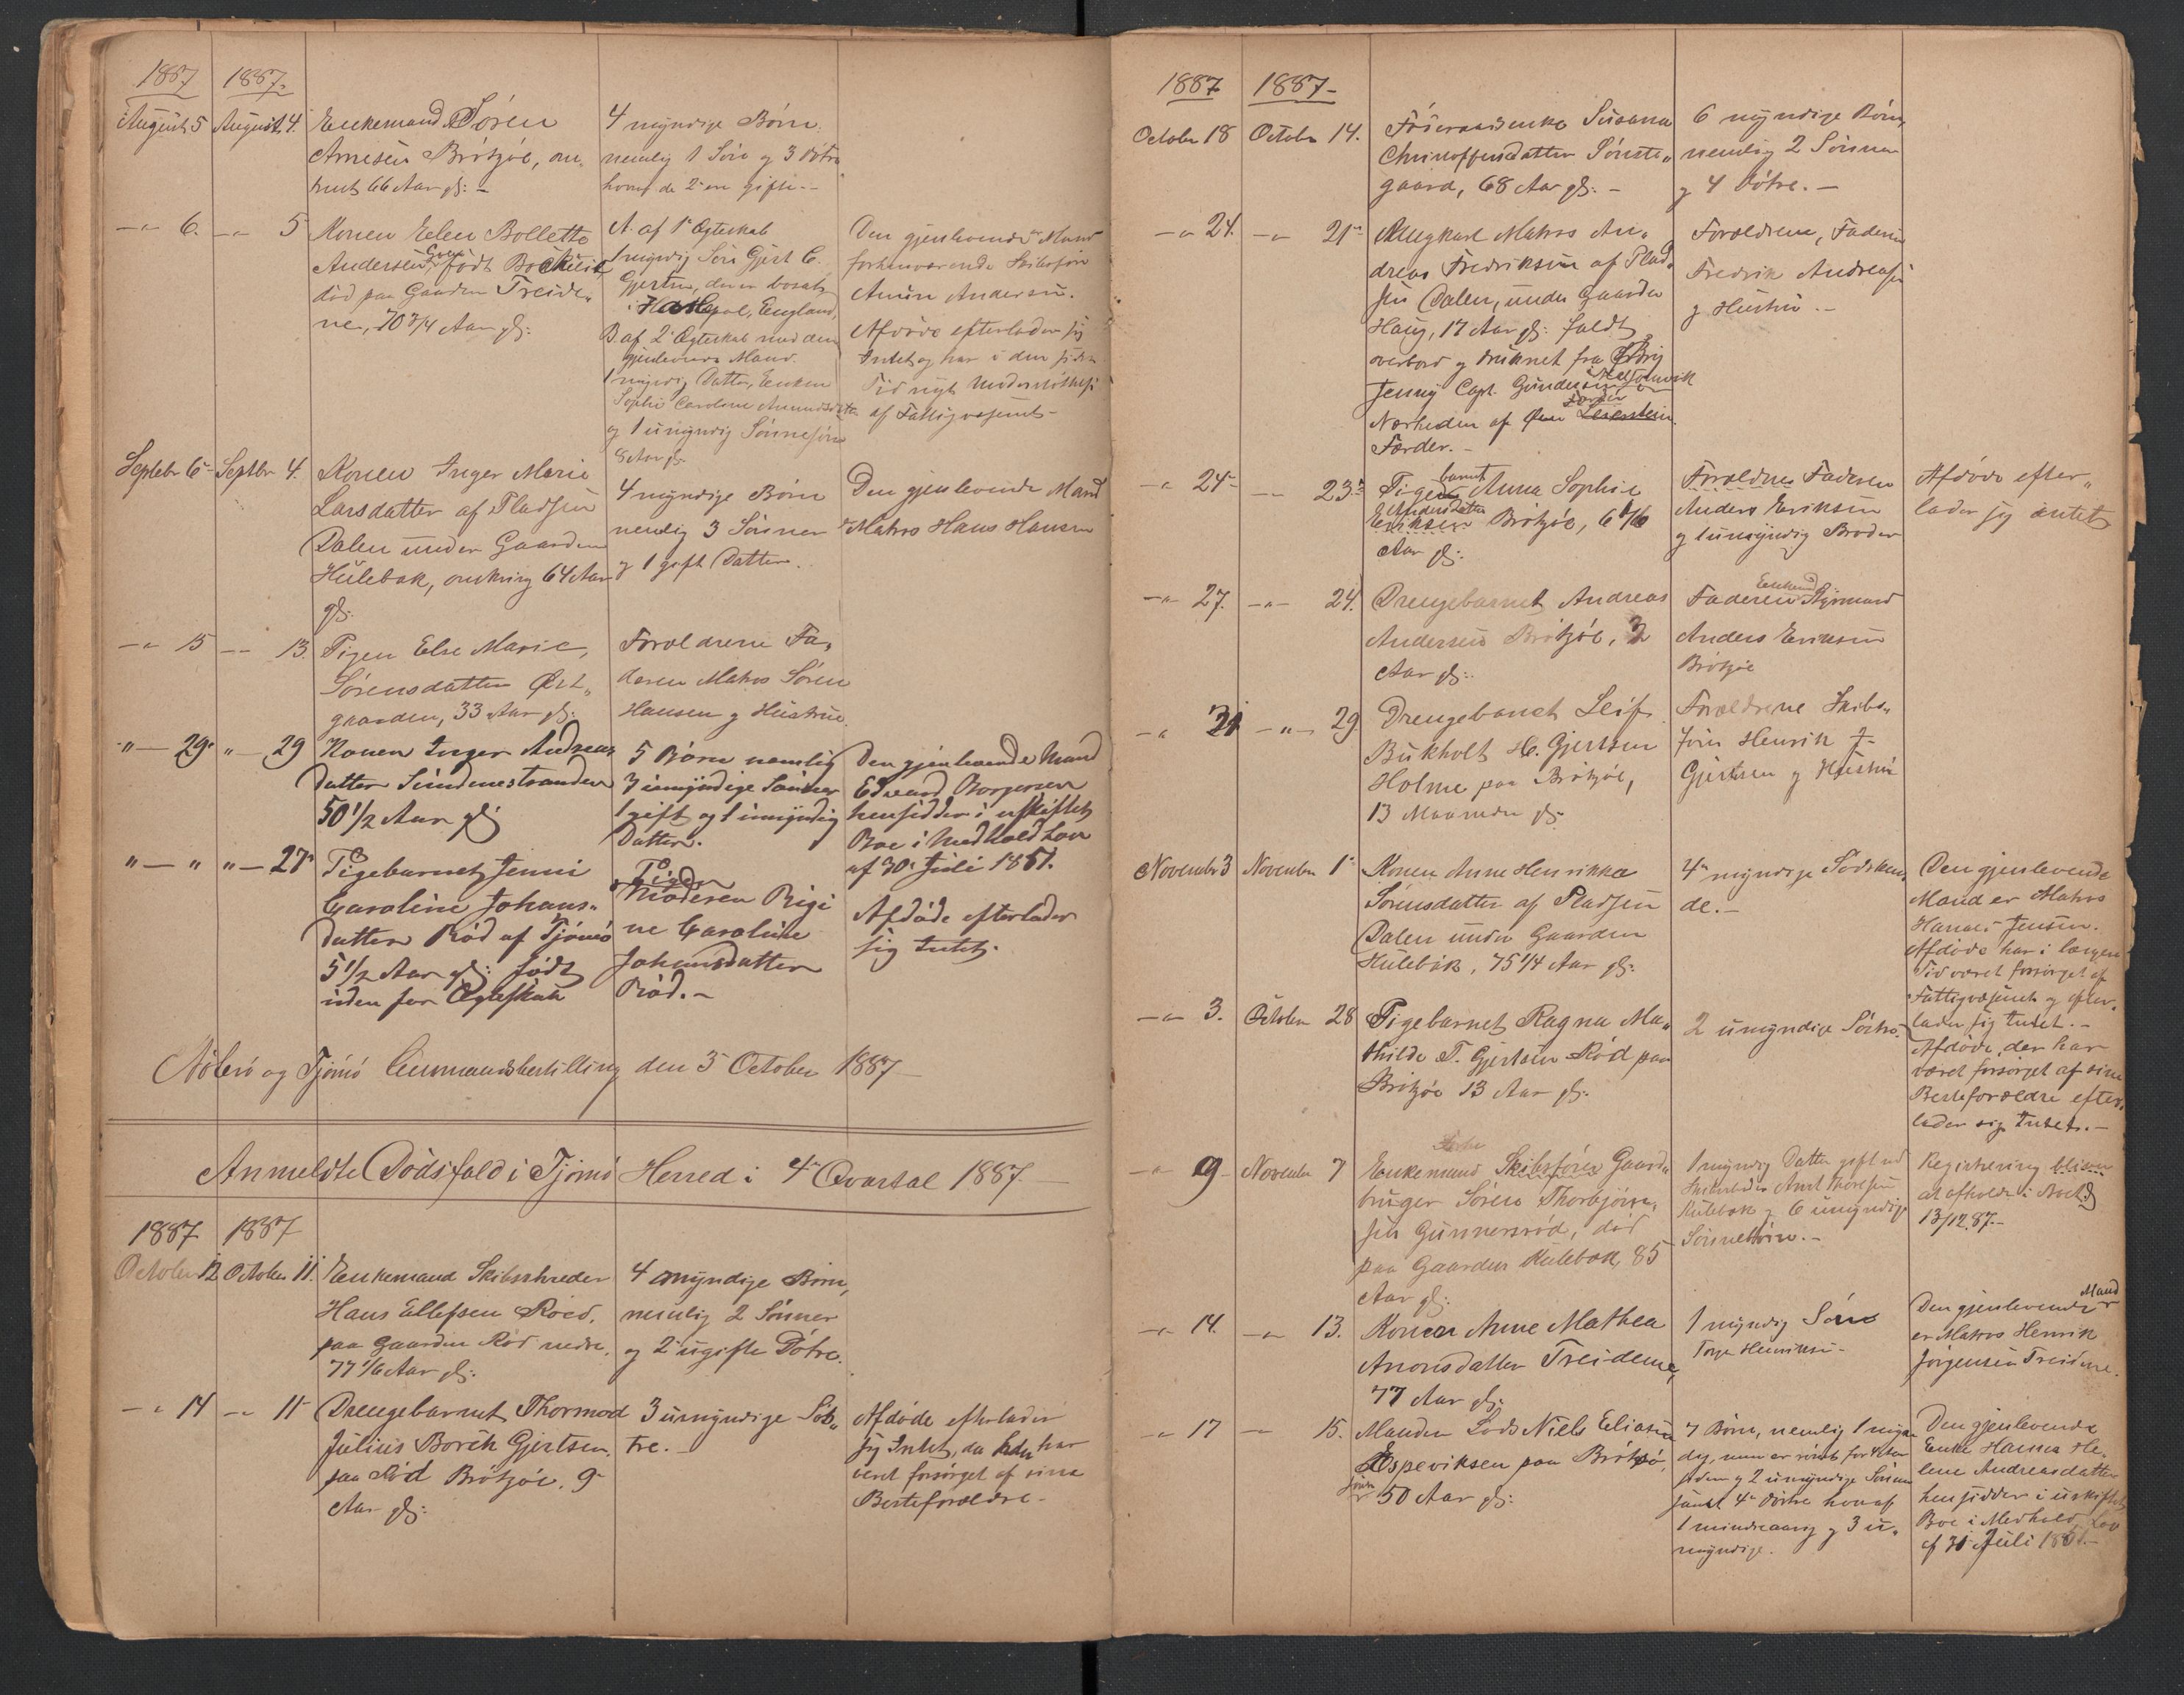 1887 1887.
August 5 August 4. Enkemand Sören 4 myndige Börn
Arnesen Brötzöe, om, nemlig 1 Sön og 3 Dötre
trent 66 Aar gl: - hvoraf de 2 ere gifte. -
-"- 6. -"- 5 Konen Elen Bollette A. af 1ste Ægteskab Den gjenlevende Mand
Andersen, födt 1 myndig Sön Gjert C. forhenværende Skibsförer
död paa Gaarden Treide, Gjertsen, der er bosat Andersen.
ne, 70 3/4 Aar gl: i England, Afdöde efterlader sig
B af 2det Ægteskab med den Intet og har i den sidste
gjenlevende Mand. Tid nydt Understöttelse
1 myndig Datter, Enken af Fattigvæsenet -
Sophie Caroline
og 1 umyndig Sönnesön
8 Aar gl.
Septebr 6 Septbr 4. Konen Inger Marie 4 myndige Börn Den gjenlevende Mand
Larsdatter af Pladsen nemlig 3 Sönner er Matros Hans Hansen
Dalen under Gaarden og 1 gift Datter.
Hulebak, omkring 64 Aar
gl:
-"- 15 -"- 13. Pigen Else Marie, Forældrene Fa,
Sörensdatter Öst, deren Matros Sören
gaarden, 33 Aar gl: Hansen og Hustrue.
"- 29. "- 29 Konen Inger Andreas 5 Börn nemlig Den gjenlevende Mand
datter Sundenestranden 3 umyndige Sönner Edvard Borgersen
50 1/2 Aar gl: 1 gift og 1 umyndig hensidder i uskiftet
Datter. Boe i Medhold Lov
"-" "- 27 Pigebarnet Jenni Pigen af 30 Juli 1851.
Caroline Johans, Moderen Rigi
datter Röd af Tjömö ne Caroline Afdöde efterlader
5 1/2 Aar gl: födt Johansdatter sig Intet.
uden for Ægteskab Röd. -
Nöterö og Tjömö Lensmandsbestilling den 5 October 1887
Anmeldte Dödsfald i Tjömö Herred i 4de Qvartal 1887
1887 1887
October 12 October 11. Enkemand Skibsrheder 4 myndige Börn,
Hans Ellefsen Röed, nemlig 2 Sönner
paa Gaarden Röd nedre, og 2 ugifte Dötre.
77 1/6 Aar gl:
-"- 14 -"- 11 Drengebarnet Thormod 3 umyndige Sös, Afdöde efterlader
Julius Borch Gjertsen tre. - sig Intet, da har
paa Röd Brötzöe, 9 været forsörget af sine
Aar gl: Besteforældre -
1887 1887 -
October 18 October 14. Föderaadsenke Susanna 6 myndige Börn,
Christoffersdatter Sönste, nemlig 2 Sönner
gaard, 68 Aar gl: - og 4 Dötre. -
-"- 24. -"- 21 Ungkarl Matros An, Forældrene, Faderen
dreas Fredriksen af Plad, Fredrik Andreassen
sen Dalen, under Gaarden og Hustru. -
Haug, 17 Aar gl: faldt
overbord og druknet fra Brig
Jenny Capt. Gundersen
Nærheden af Öen
Færder. -
-"- 24 -"- 23 Pigebarnet Anna Sophie Forældrene Faderen Afdöde efter,
Andersdatter Anders Eriksen lader sig intet
Eriksen Brötzöe, 6 Aar gl: og 1 umyndig Broder
-"- 27. -"- 24. Drengebarnet Andreas Faderen Enkemand Styrmand
Andersen Brötzöe, 2 Anders Eriksen
Aar gl: Brötzöe
-"- 31 -"- 29. Drengebarnet Leif Forældrene Skibs,
Bukholt H. Gjertsen förer Henrik J.
Holme paa Brötzöe, Gjertsen og Hustru
13 Maaneder gl:
November 3 November 1 Konen Anne Henrikke 4 myndige Södsken, Den gjenlevende
Sörensdatter af Pladsen de. - Mand er Matros
Dalen under Gaarden Hans Jensen.
Hulebak, 75 1/4 Aar gl: Afdöde har i længere
Tid været forsörget af
Fattigvæsenet og efter,
-"- 3. October 28 Pigebarnet Ragna Ma, 2 umyndige Söstre. lader sig Intet. -
thilde T. Gjertsen Röd paa Afdöde, der har
Brötzöe 13 Aar gl: været forsörget af sine
Besteforældre efter,
lader sig Intet. -
-"- 9 November 7 Enkemand Skibsförer Gaard, 1 myndig Datter gift med Registrering bliver
bruger Sören Thorbjörn, Skibsreder Anst Thoresen at afholde i Boet
sen Gunnersröd, död Hulebak og 6 umyndige 13/12 87. -
paa Gaarden Hulebak, 85 Sönnebörn. -
Aar gl:
-"- 14. -"- 13. Konen Anne Mathea 1 myndig Sön Den gjenlevende Mand
Aronsdatter Treidene, Torger Henriksen - er Matros Henrik
77 Aar gl: Jörgensen Treidene.
-"- 17 -"- 15. Manden Lods Niels Eliasen 7 Börn, nemlig 1 myn Den gjenlevende
Espeviksen paa Brötzö, dig, men er reist for 4 Aar Enke Hanna He,
50 Aar gl: siden og 2 umyndige Sönner lene Andreasdatter
samt 4 Döttre hvoraf hensidder i uskiftet
1 mindreaarig og 3 u, Boe i Medhold Lov
myndige. af 30 Juli 1851. -